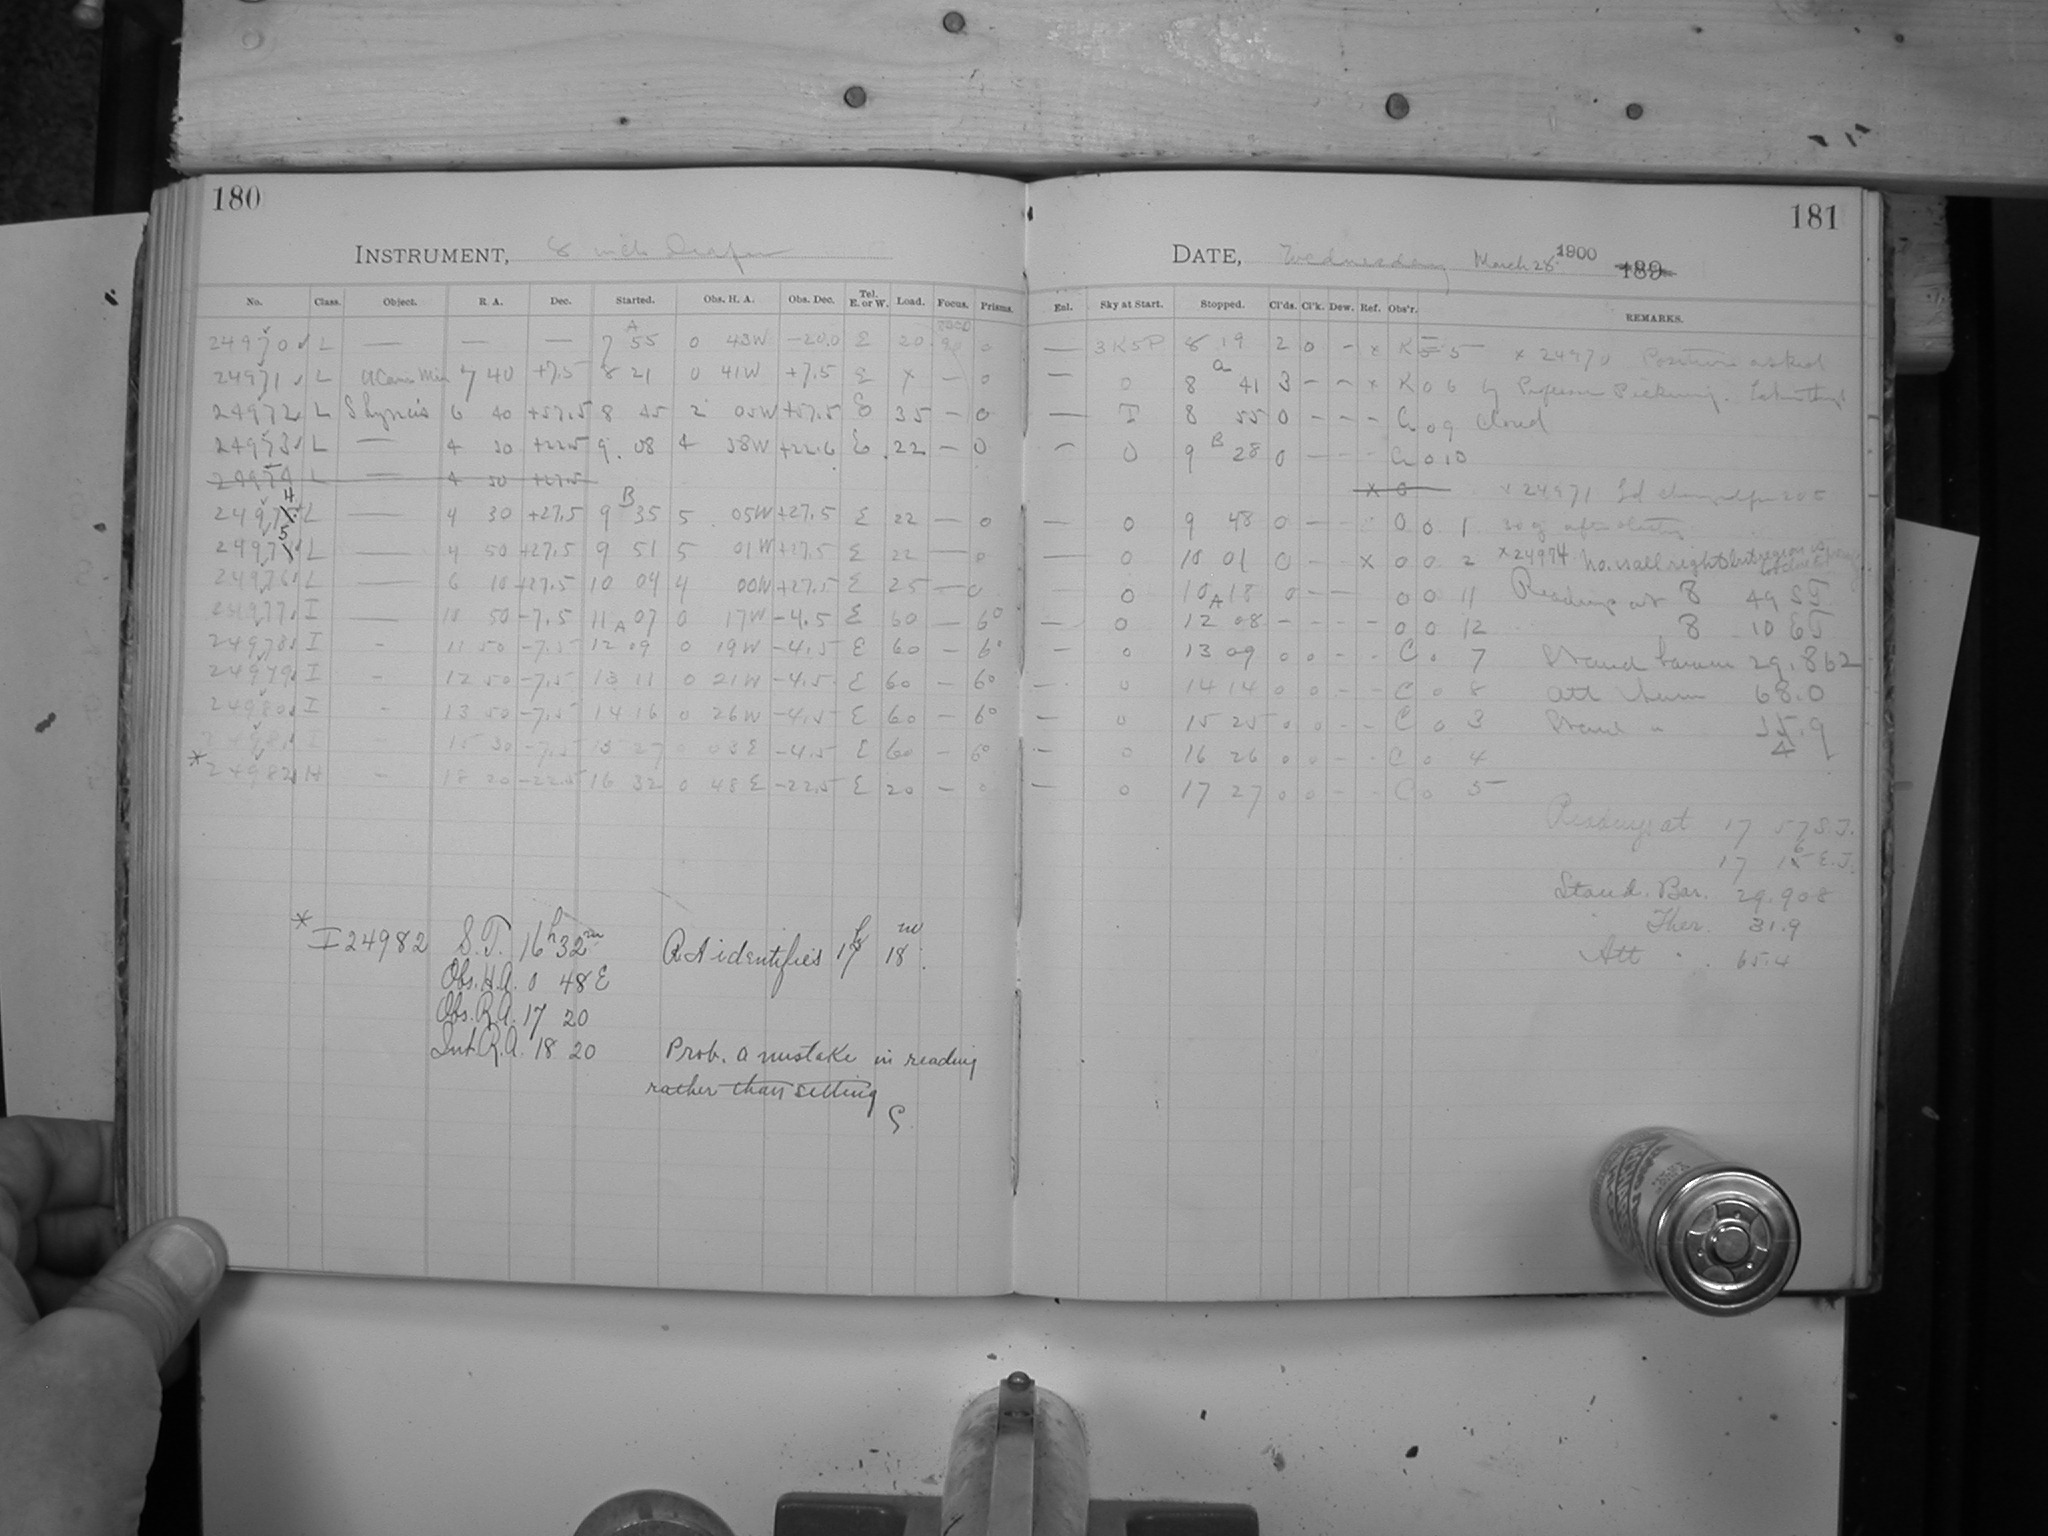 180
INSTRUMENT, 8 inch Draper
No. Class. Object. R. A. Dec. Started. Obs. H. A. Obs. Dec. Tel. E. or W. Load. Focus. Prisms.
24970 L — — — 7 A 55 0 43W −20.0 E 20 0
24971 L 7 40 +7.5 8 21 0 41W +7.5 E — 0
24972 L 6 40 +57.5 8 45 2 05W +57.5 E 35 — 0
24973 L — 4 30 +22.5 9 08 4 38W +22.6 E 22 — 0
24974 L 4 50 +27.5
2497 4 L — 4 30 +27.5 9 B 35 5 05W +27.5 E 22 — 0
2497 5 L — 4 50 +27.5 9 51 5 01W +27.5 E 22 — 0
24976 L — 6 10 +27.5 10 09 4 00W +27.5 E 25 — 0
24977 I — 10 50 −7.5 11 07 0 17W −4.5 E 60 — 6°
24978 I - 11 50 −7.5 12 A 09 0 19W −4.5 E 60 — 6°
24979 I - 12 50 −7.5 13 11 0 21W −4.5 E 60 — 6°
24980 I - 13 50 −7.5 14 16 0 26W −4.5 E 60 — 6°
24981 I 15 30 −7.5 15 27 0 03E −4.5 E 60 — 6°
* 24982 H - 18 20 −22.5 16 32 0 48E −22.5 E 20 — 0
* I 24982 S.T. 16h 32m RA identifies 17h 18m.
Obs. H.A. 0 48E
Obs. R.A. 17 20
Int. R.A. 18 20 Prob. a mistake in reading
rather than setting
G.
181
DATE, Wednesday March 28 1900 189
Enl. Sky at Start. Stopped. Cl'ds. Cl'k. Dew. Ref. Obs'r. REMARKS.
— 3K5P 8 19 2 0 - x K 5 x 24970 Position asked
— 0 8 a 41 3 - - x K 0 6 by Professor Pickering.
— I 8 55 0 - - - C 0 9 Cloud
— 0 9 B 28 0 - - - C 0 10
x 0 x 24971
— 0 9 48 0 - - 0 0 1
— 0 10 01 0 - - x 0 0 2 x 24974 No. is all right but region is
— 0 10 18 0 - - 0 0 11 Reading at 8 49 ST
— 0 12 A 08 - - - - 0 0 12 8 10 ET
— 0 13 09 0 0 - - C 0 7 Stand barom 29.862
— 0 14 14 0 0 - - C 0 8 Att therm 68.0
— 0 15 25 0 0 - - C 0 3 Stand "
— 0 16 26 0 0 - - C 0 4
— 0 17 27 0 0 - - C 0 5
Reading at 17 57 S.T.
17 E.T.
Stand. Bar. 29.908
Ther. 31.9
Att " 65.4